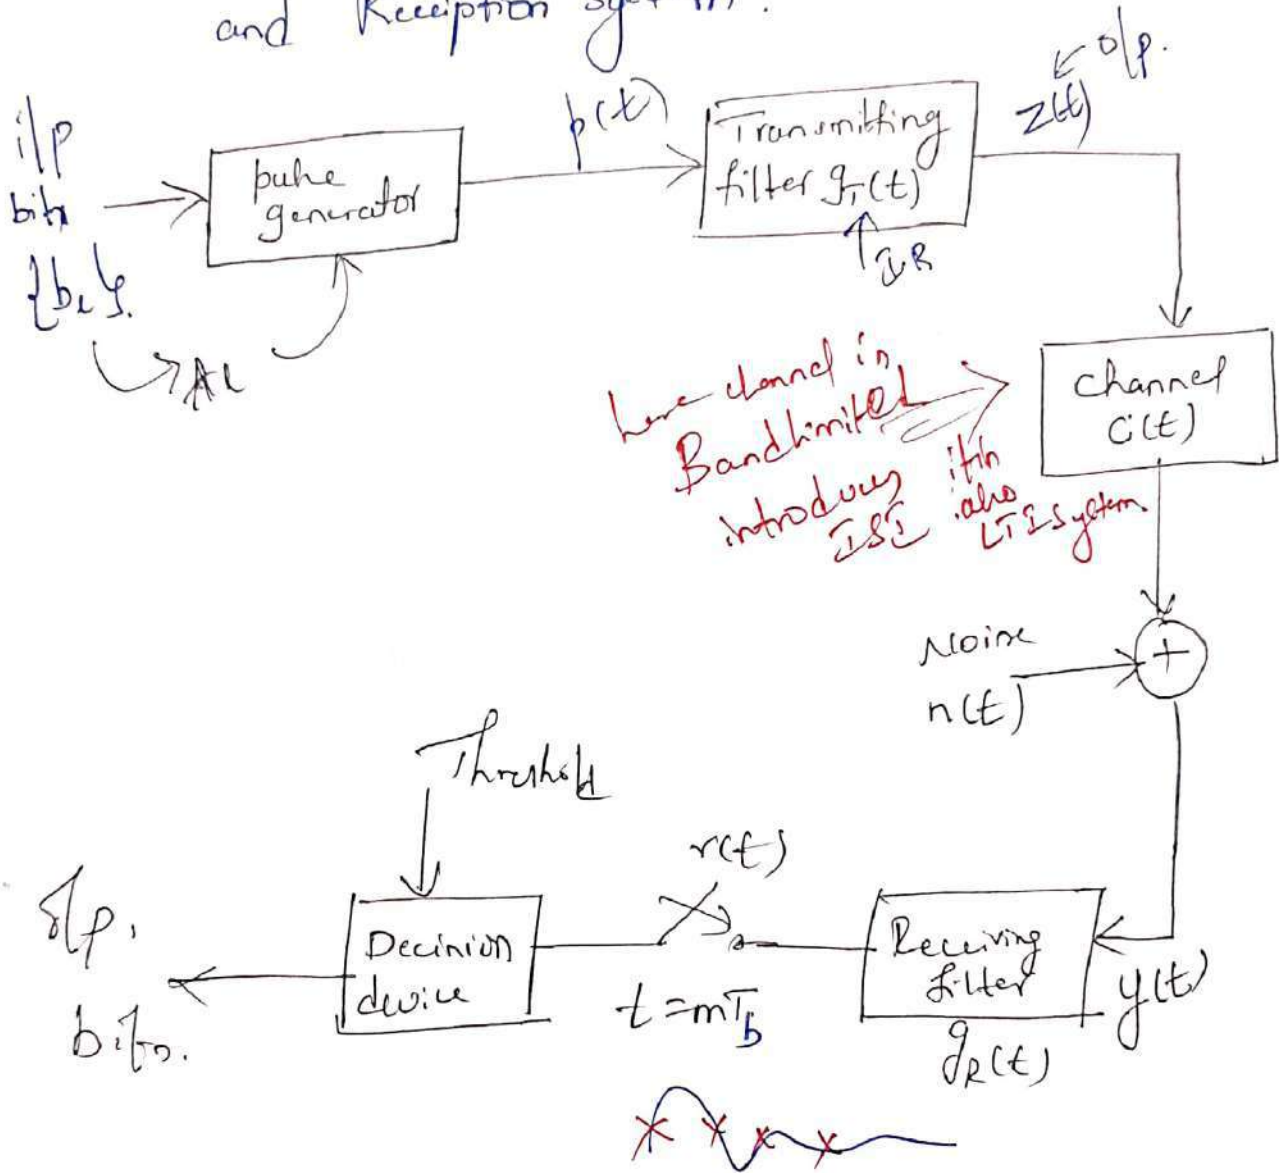 and Receiption system.
i/p
bits
{bk}.
Ak
pulse
generator
p(t)
Transmitting
filter gT(t)
IR
z(t)
o/p.
here channel is
Bandlimited
introduces
ISI
it is
also
LTI System.
channel
C(t)
Noise
n(t)
+
y(t)
Receiving
filter
gR(t)
r(t)
t=mTb
Threshold
Decision
device
o/p.
bits.